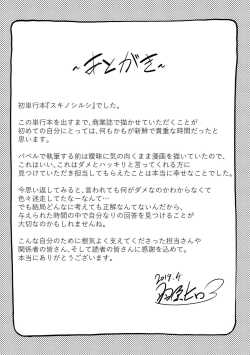 ~あとがき~
初単行本『スキノシルシ』でした。
この単行本を出すまで、商業誌で描かせていただくことが
初めての自分にとっては、何もかもが新鮮で貴重な時間だったと
思います。
バベルで執筆する前は曖昧に気の向くまま漫画を描いていたので、
これはいい、これはダメとハッキリと言ってくれる方に
見つけていただき担当してもらえたことは本当に幸せなことでした。
今思い返してみると、言われても何がダメなのかわからなくて
色々迷走してたなーなんて…
でも結局どんなに考えても正解なんてないんだから、
与えられた時間の中で自分なりの回答を見つけることが
大切なのかもしれませんね。
こんな自分のために根気よく支えてくださった担当さんや
関係者の皆さん、そして読者の皆さんに感謝を込めて。
本当にありがとうございます。
2019.4